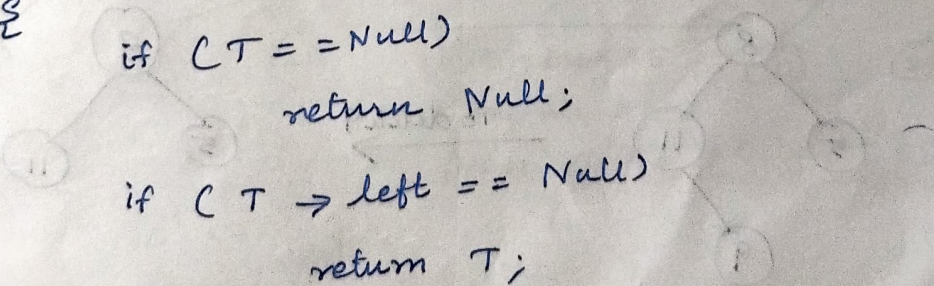 {
if (T == Null)
return Null;
if (T → left == Null)
return T;